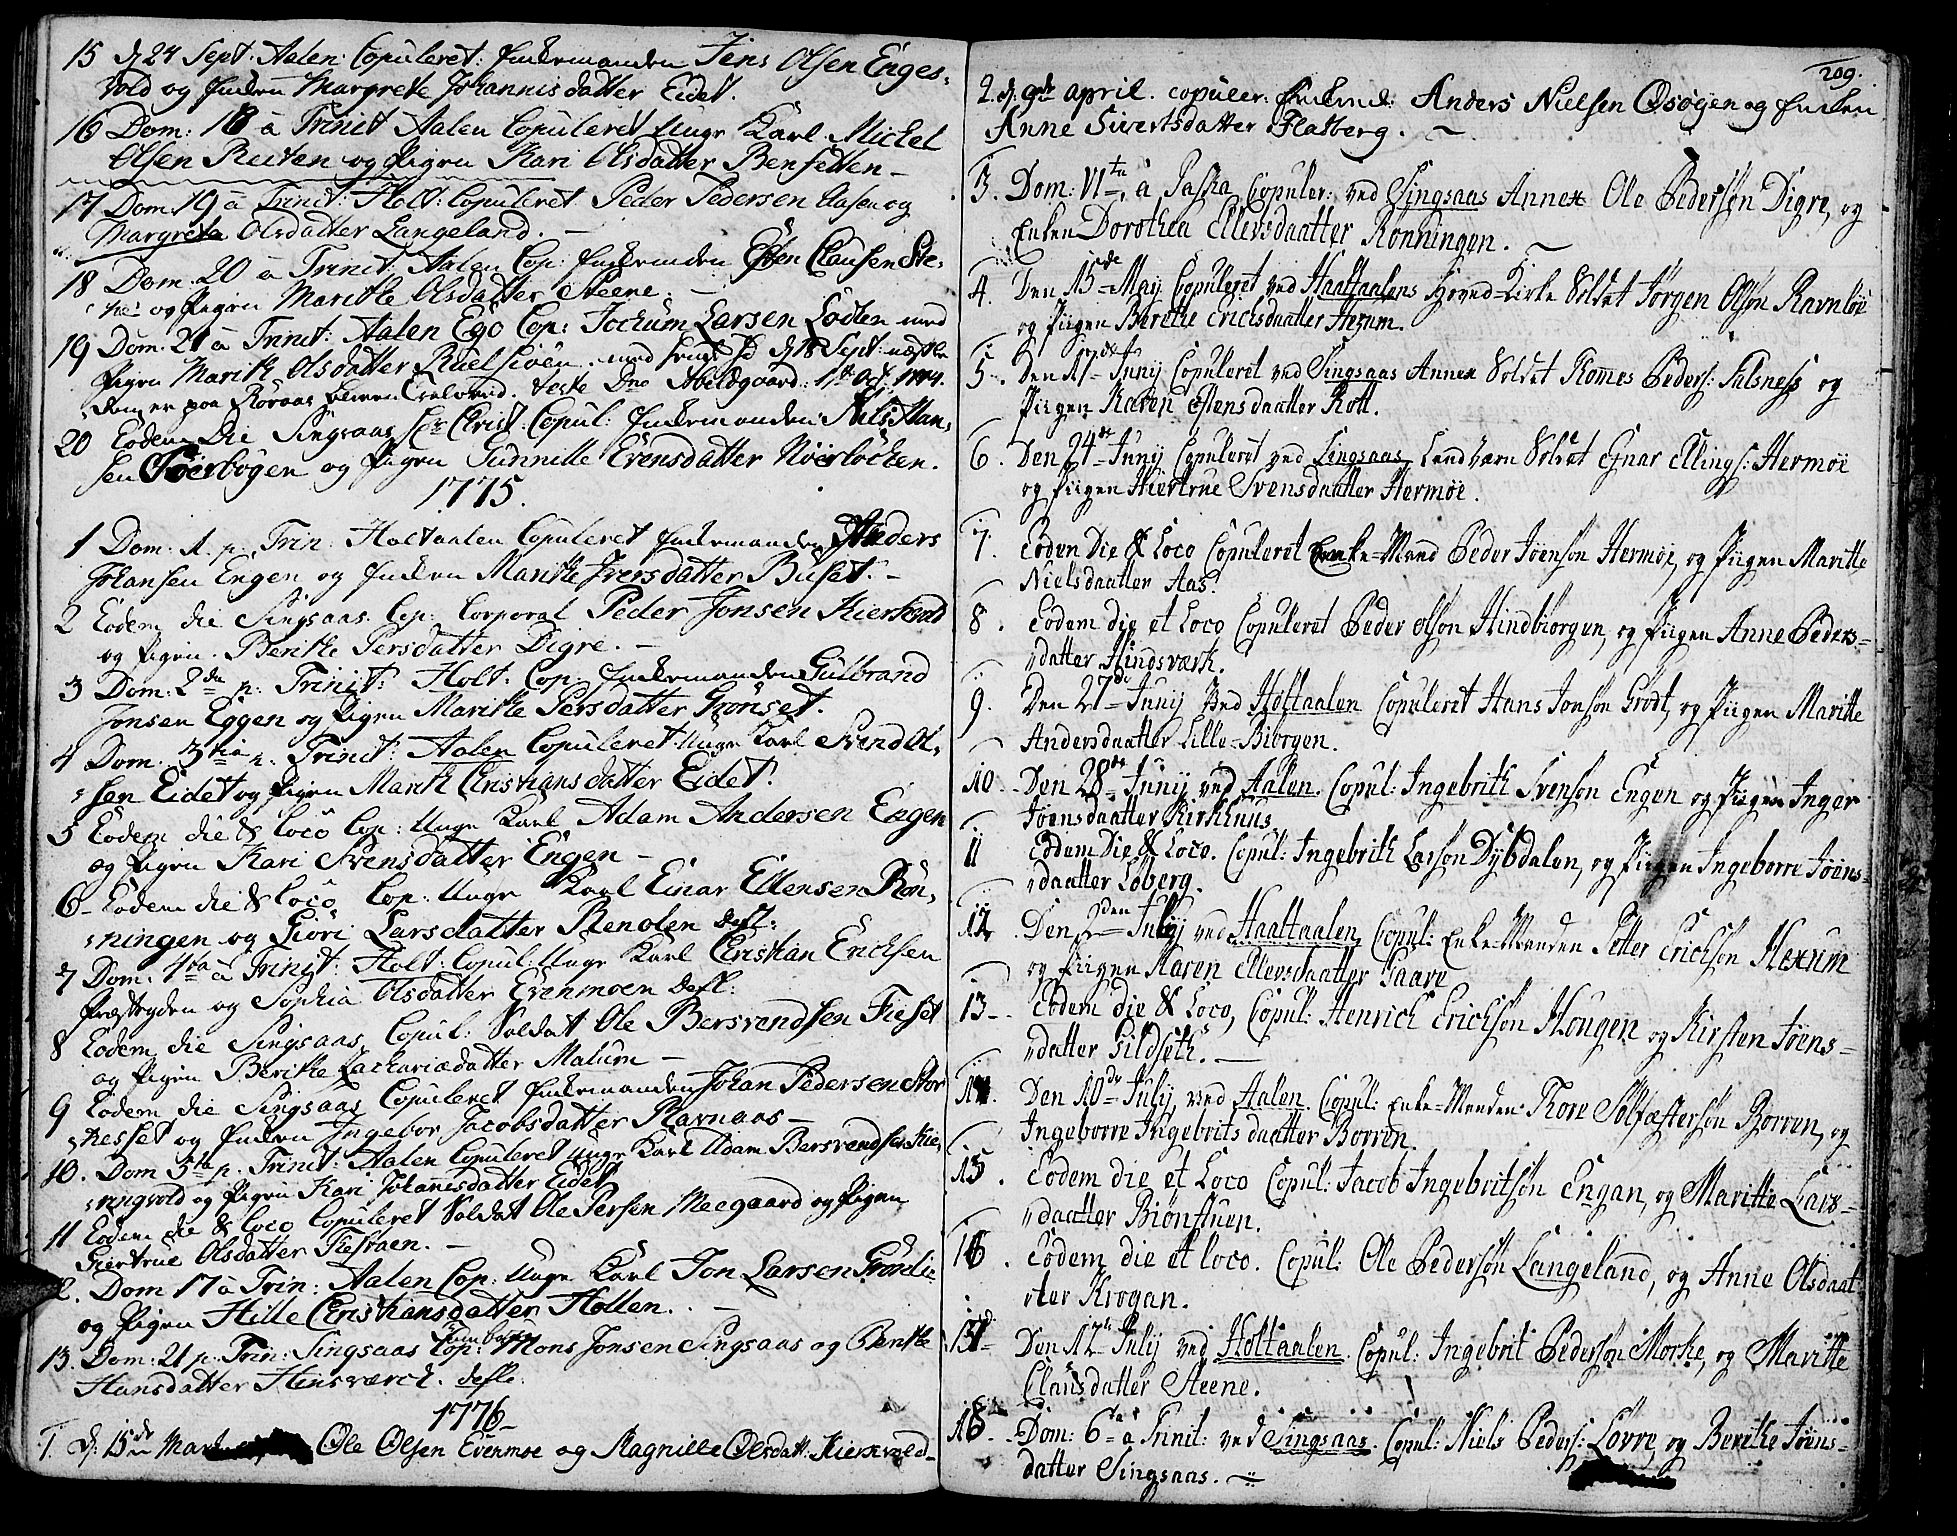 15 d 24 Sept. Aalen: Copuleret: Enkemanden Jens Olsen Enges-
vold og Enken Margrete Johannisdatter Eidet.
16 Dom: 18 à Trinit Aalen Copuleret Unge Karl Michel
Olsen Reiten og Pigen Kari Olsdatter Bensetten -
17 Dom. 19 à Trinit: Holt: Copuleret Peder Pedersen Aasen og
Margreta Olsdatter Langeland. -
18 Dom. 20 à Trinit: Aalen Cop: Enkemanden Esten Clausen Ste-
ne og Pigen Marithe Olsdatter Steene. -
19 Dom. 21 à Trinit: Aalen Ego Cop: Jochum Larsen Lodten med
Pigen Marith Olsdatter med d 18 Sept:
paa Røraas Abildgaard: 1774.
20 Eodem Die Singsaas Copul: Enkemanden Nils Han-
sen og Pigen Gunnille Evensdatter Nøerløcken.
1775.
1 Dom. 1. p. Trin: Holtaalen Copuleret Enkemanden Anders
Johansen Engen og Enken Marithe Iversdatter Buset. -
2 Eodem die Singsaas Cop: Corporal Peder Jonsen Kiersvold
og Pigen Berithe Persdatter Digre. -
3 Dom. 2da p. Trinit: Holt: Cop: Enkemanden Gulbrand
Jonsen Eggen og Pigen Marithe Persdatter Grønset.
4 Dom. 3tia p. Trinit: Aalen Copuleret Unge Karl Svend Ol-
sen Eidet og Pigen Marith Christiansdatter Eidet.
5 Eodem die & loco Cop: Unge Karl Adam Andersen Engen
og Pigen Kari Svensdatter Engen -
6 - Eodem die & loco Cop: Unge Karl Einar Ellensen Røn-
ningen og Giøri Larsdatter Renolen desl:
7 Dom. 4ta à Trinit: Holt: Copul: Unge Karl Christian Erichsen
Præstøyden og Sophia Olsdatter Evenmoen desl:
8 Eodem die Singsaas, Copul: Soldat Ole Bersvendsen Fieset
og Pigen Berithe Zachariædatter Malum -
9 Eodem die Singsaas Copuleret Enkemanden Johan Pedersen Stor
og Enken Ingebor Jacobsdatter Ravnaas -
10. Dom 5ta p. Trinit: Aalen Copuleret Unge Karl Adam Bersvendsen Kie-
ringvold og Pigen Kari Johanisdatter Eidet
11 Eodem die & loco Copuleret Soldat Ole Persen Meegaard og Pigen
Giertrue Olsdatter -
12. Dom 17 à Trin: Aalen Cop: Unge Karl Jon Larsen Grønlie
og Pigen Hille Christiansdatter Holten. -
13. Dom: 21 p. Trin: Singsaas Cop: Mons Jonsen Singsaas og Berithe
Hansdatter Hinsværch. desl:
1776 -
1. d: 15de Marti Ole Olsen Evenmoe og Magnille Olsdatt: Kiersvold -
209.
2. d. 9de april. copuler: Enkemd: Anders Nielsen Øsøyen og Enken
Anne Sivertsdatter Flatberg. -
3. Dom: VIta à Pascha Copuler: ved Singsaas Annex Ole Pedersøn Digre, og
Enken Dorothea Ellevsdaatter Rønningen. -
4. Den 15de May Copuleret ved Haaltaalens Hoved-Kirke Soldat Jørgen Olsøn Ravnløe
og Piigen Berithe Erichsdaatter Hexum.
5. Den 17de Junij Copuleret ved Singsaas Annex Soldat Peders: og
Piigen Karen Estensdaatter Kott.
6. Den 24de Junij Copuleret ved Singsaas Landværn Soldat Ejnar Ellings: Hermøe
og Piigen Hiertrue Svensdaatter Hermøe.
7. Eoden Die & Loco Copuleret Enke-Mand Peder Jøensøn Hermøe, og Piigen Maritte
Nielsdaatter Aas.
8. Eodem die et Loco Copuleret Peder Olsøn Hindbiorgen, og Piigen Anne Peders-
datter Hindsværk.
9. Den 27de Junij Ved Holtaalen Copuleret Hans Jonsøn Grøtt, og Piigen Maritte
Andersdaatter Lille-Biorgen.
10. Den 28de Junij ved Aalen. Copul: Ingebrith Svensøn Engen og Piigen Inger
Jøensdaatter Kirkhuus
11 Eodem Die & Loco. Copul: Ingebrith Larsøn Dybdalen, og Piigen Ingeborre Jøens-
daatter Løberg.
12 Den 2den July ved Haaltaalen Copul: Enke-Manden Petter Erichsøn Hexum
og Piigen Karen Ellevsdaatter Gaare
13 - Eodem die & Loco, Copul: Henrich Erichsøn Hougen og Kirsten Jøens-
datter Gildseth. -
14. Den 10de July ved Aalen. Copul: Enke-Manden Thore Solfæstersøn Borren, og
Ingeborre Ingebritsdaatter Borren.
15. Eodem die et Loco Copul: Jacob Ingebritsøn Engan, og Maritte Lars-
daatter Biønstuen.
16. Eodem die et loco. Copul: Ole Pedersøn Langeland, og Anne Olsdaat-
ter Krogan.
17 Den 12te July ved Holtaalen. Copul: Ingebrit Pedersøn Morke, og Maritte
Clausdatter Steene.
18 - Dom: 6ta à Trinit: ved Singsaas. Copul: Niels Peders: Løvre, og Berithe Jøens-
datter Singsaas. -